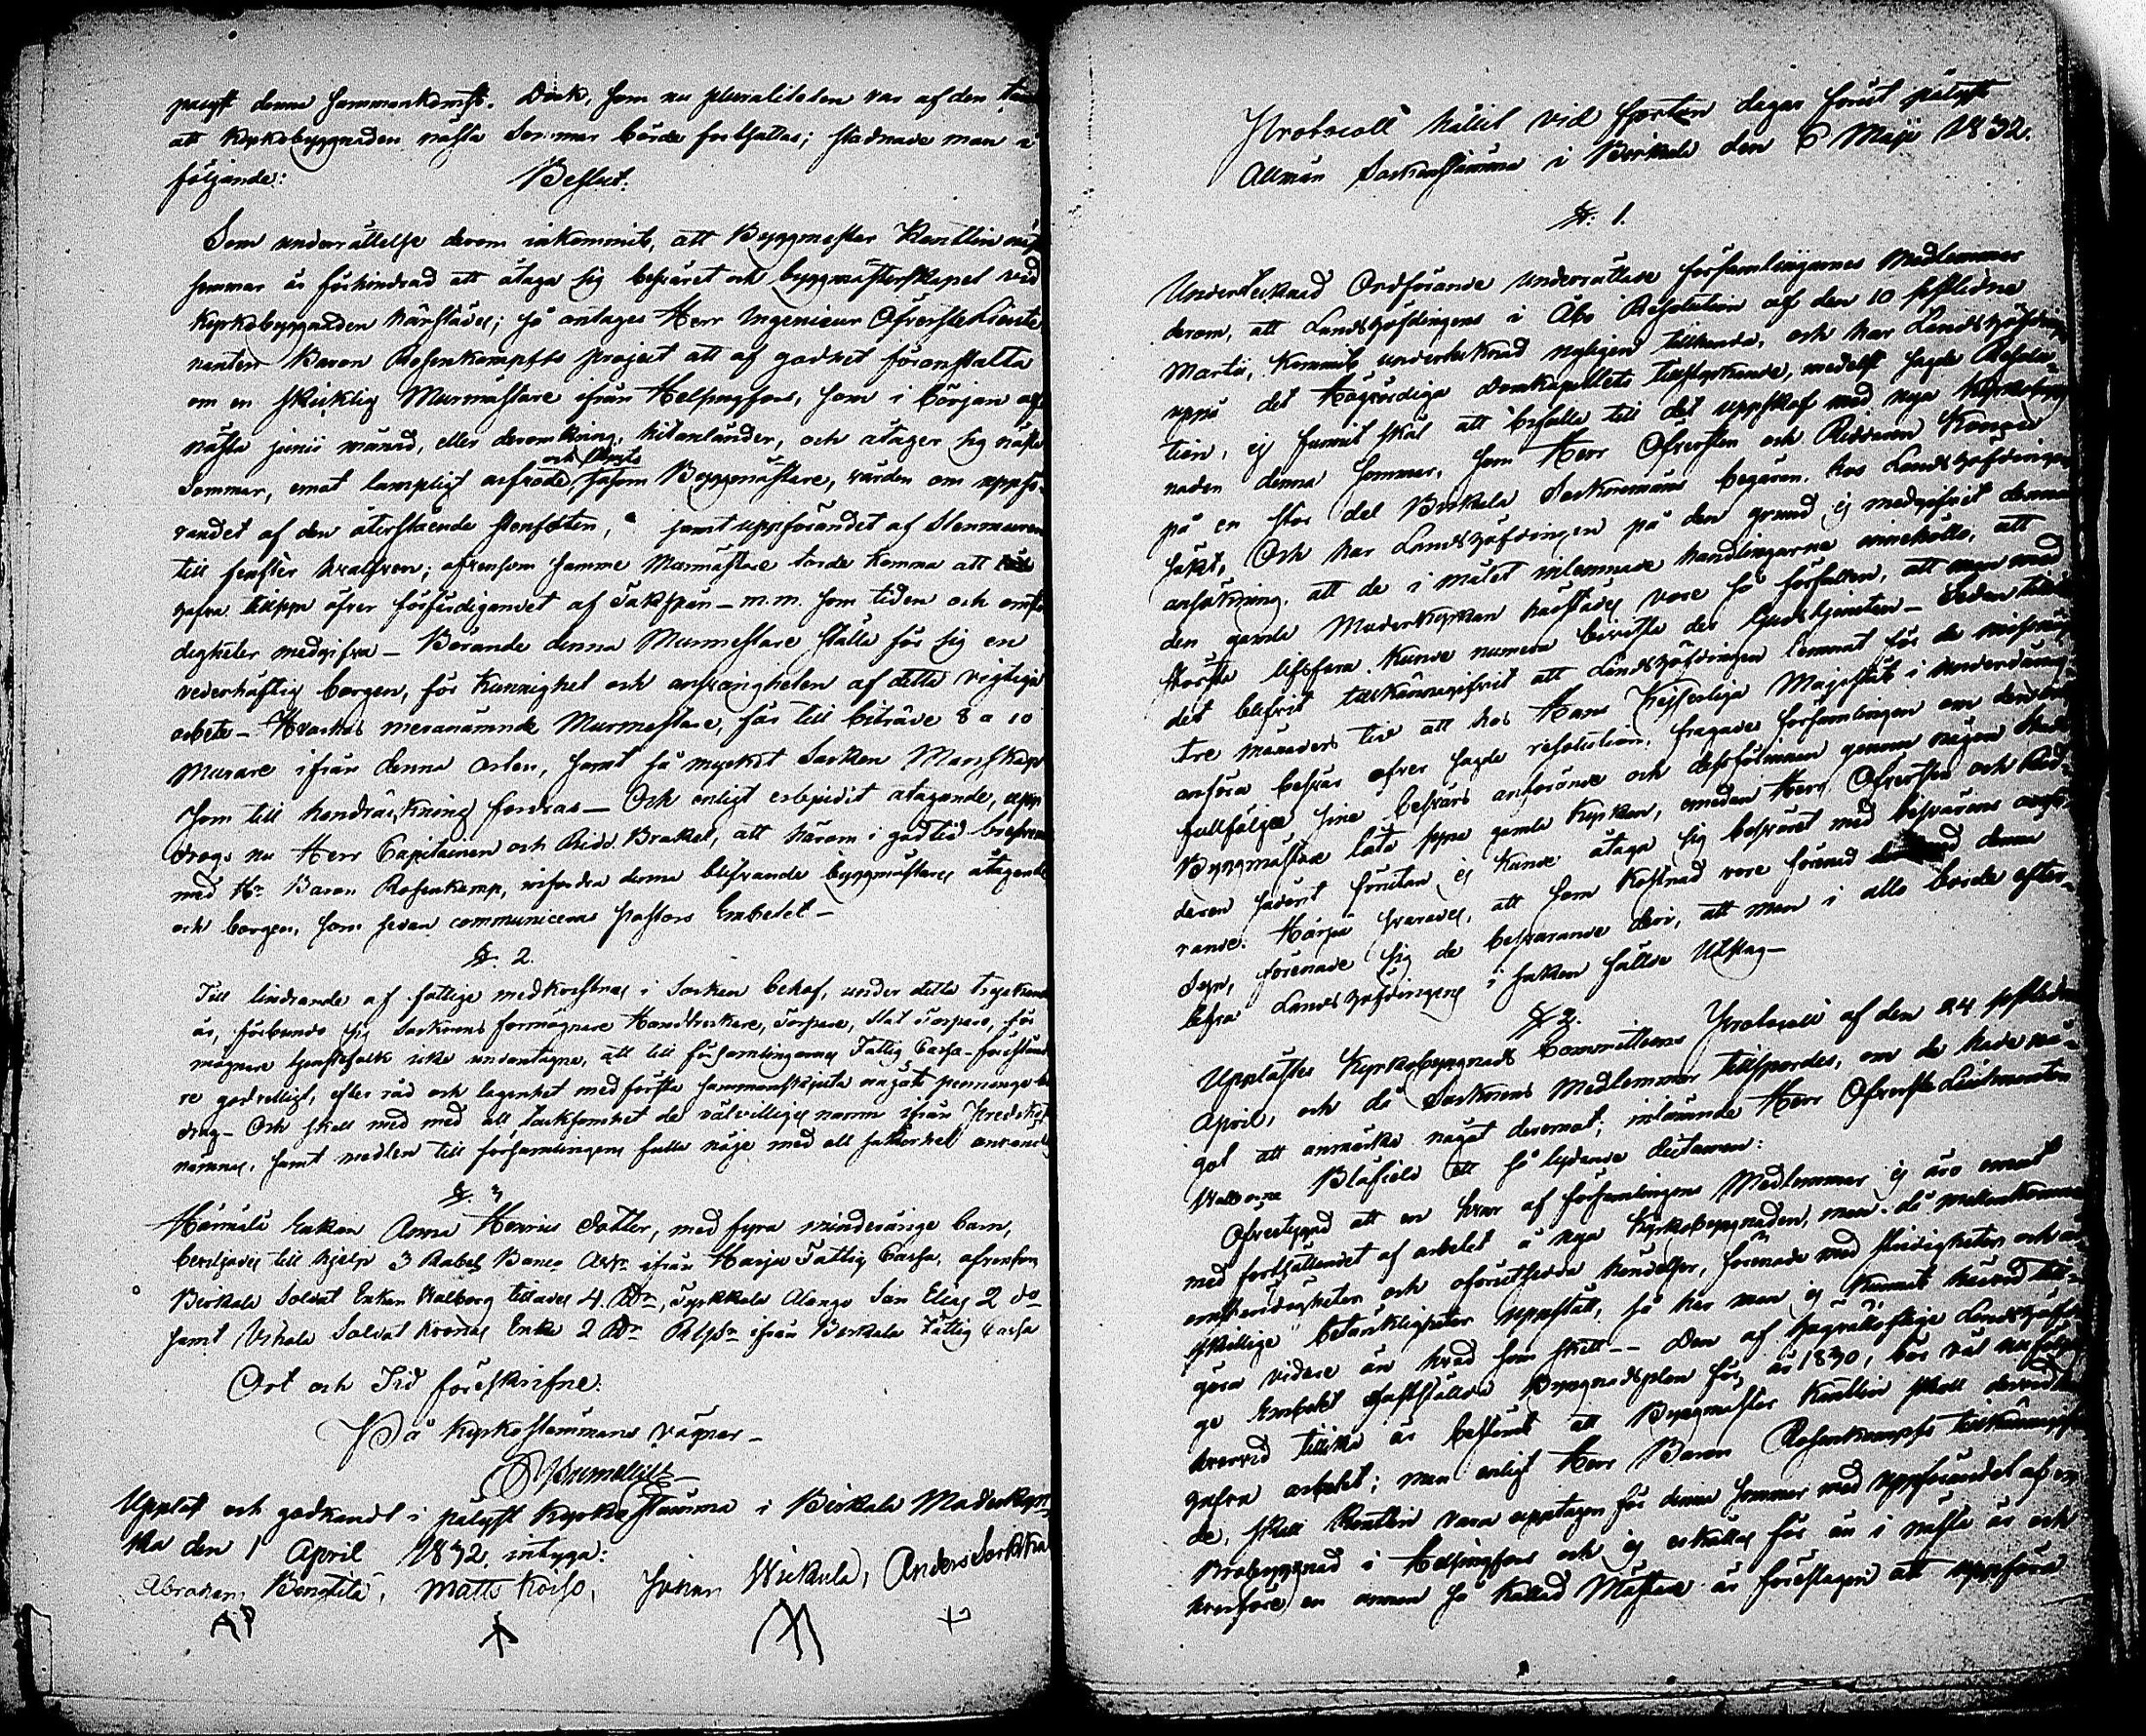 pålyst denna sammankomst. Dock, som nu pluraliteten var af den
att Kyrkobyggnaden nästa Sommar borde fortsättas; stadnade man i
följande: Beslut:
Som underrättelse derom inkommit, att Byggmästar Kantlin
sommar är förhindrad att åtaga sig besväret och byggmästerskapet vid
Kyrkobyggnaden härstädes; så antages Herr Ingenieur Öfverste Lieute
nanten Baron Rosenkampffs project att af godhet föranstalta
om en skicklig Murmästare ifrån Helsingfors, som i början af
nästa junii månad, eller deromkring, hitanländer, och åtager sig nästa
Sommar, emot lämpligt arfvode, såsom Byggmästare, vården om uppfö-
randet af den återstående stenfoten, samt uppförandet af Stenmuren
till fenster hvalfven; äfvensom samme Murmästare torde komma att
hafva tillsyn öfver förfärdigandet af Takspån - m.m. som tiden och omstän
digheter medgifva - Börande denna Murmestare ställa för sig en
vederhäftig borgen, för kunnighet och ansvarigheten af detta vigtiga
arbete - Hvarhos meranämnde Murmestare, får till biträde 8 a 10
Murare ifrån denna orten, samt så mycket Socken Manskap
som till handräckning fordras - Och enligt erbjudit åtagande, upp
drogs nu Herr Capitainen och Ridd. Brakel, att härom i god tid brefvexla
med Hr Baron Rosenkamp, infordra denna blifvande byggmästares åtagande
och borgen, som sedan communiceras Pastors Embetet -
§. 2.
Till lindrande af fattige medkristnas i Socken behof, under detta tryckande
år, förbundo sig Sockenens förmögnare Handtverkare, Torpare, för
mögnare tjenstefolk icke undantagne, att till församlingarnas Fattig Cassa
re godvilligt, efter råd och lägenhet med första sammanskjuta något penninge bi
drag - Och skall med med all tacksamhet de välvilligas namn ifrån Predikstolen
nämnas, samt medlen till församlingens fulla nöje med all säkerhet användas
§. 3
Hannula Enkan Anna Henrics Dotter, med fyra minderåriga barn,
beviljades till hjelp 3 Rubel Banco Ass. ifrån Harju Fattig Cassa, äfvensom
Birkala Soldat Enkan Walborg tillades 4 Rdr, Alango Son Elias 2 do
samt Soldat Enka 2 Rdr ifrån Birkala Fattig Cassa
Ort och Tid föreskrifne:
På Kyrkostämmans vägnar -
Uppläst och godkändt i pålyst Kyrkostämma i Birkala Moderkyr-
ka den 1 April 1832, intyga:
Abraham Matts Johan Anders
Protocoll hållit vid fjorton dagar förut pålyst
Allmän Sockenstämma i Birkala den 6 Maji 1832.
§. 1.
Undertecknad Ordförande underrättade församlingarnes Medlemmar
derom, att Landshöfdingens i Åbo Resolution af den 10 sistledne
Martii, kommit undertecknad nyligen tillhanda, och har Landshöfdingen
uppå det Högvördiga Domkapitlets tillstyrkande, medelst sagde Resolu-
tion, ej funnit skäl att befalla till det uppskof med nya Kyrkobygg
naden denna sommar, som Herr Öfversten och Riddaren
på en stor del Birkala Sockenemäns begäran, hos Landshöfdingen
sökt, Och har Landshöfdingen på den grund ej medgifvit denna
ansökning, att de i målet inlemnade handlingarne innehålla, att
den gamla Moderkyrkan härstädes vore så förfallen, att man med
största lifsfara kunde numera bivista der Gudstjensten - Sedan
det blifvit tillkännagifvit att Landshöfdingen lemnat för de missnöjde
tre månaders tid att hos Hans Kejserliga Majestät i underdånig-
anföra besvär öfver sagde resolution, frågade församlingen om
fullfölja sine besvärs anförande och dessförinnan genom någon
Byggmästare låta syna gamla Kyrkan, emedan Herr Öfversten och Rid-
daren förutan ej kunde åtaga sig besväret med besvärens anfö-
rande: Härpå svarades, att som kostnad vore förenad denna
Syn, förenade sig de besvärande deri, att man i allo borde efter-
lefva Landshöfdingens i saken fällde Utslag -
§. 2.
Upplästes Kyrkobyggnads Committeens Protocoll af den 24 sistledne
April, och då Sockenens Medlemmar tillspordes, om de hade nå-
got att anmärka deremot; inlämnde Herr Öfverste Lieutenanten
Blåfield ett så lydande dictamen:
Öfvertygad att en hvar af församlingens Medlemmar ej äro emot
med fortsättandet af arbetet å nya Kyrkobyggnaden, men då mellankomne
omständigheter och oförutsedda händelser, förenade med
skillige betänkligheter uppstått, så har man ej kunnat härvid till-
göra vidare än hvad som skett - Den af höglofliga Landshöfdin-
ge Embetet fastställda Byggnadsplan för år 1830, bör väl
hvarvid tillika är bestämt att Byggmästar Kantlin skall
hafva arbetet; men enligt Herr Baron Rosenkampffs tillkännagifvan
de, skall Kantlin vara upptagen för denna sommar med uppförandet af en
Brobyggnad i Helsingfors och ej erhållas för än i nästa år och
hvarföre en annan så kallad Mästare är föreslagen att uppföra